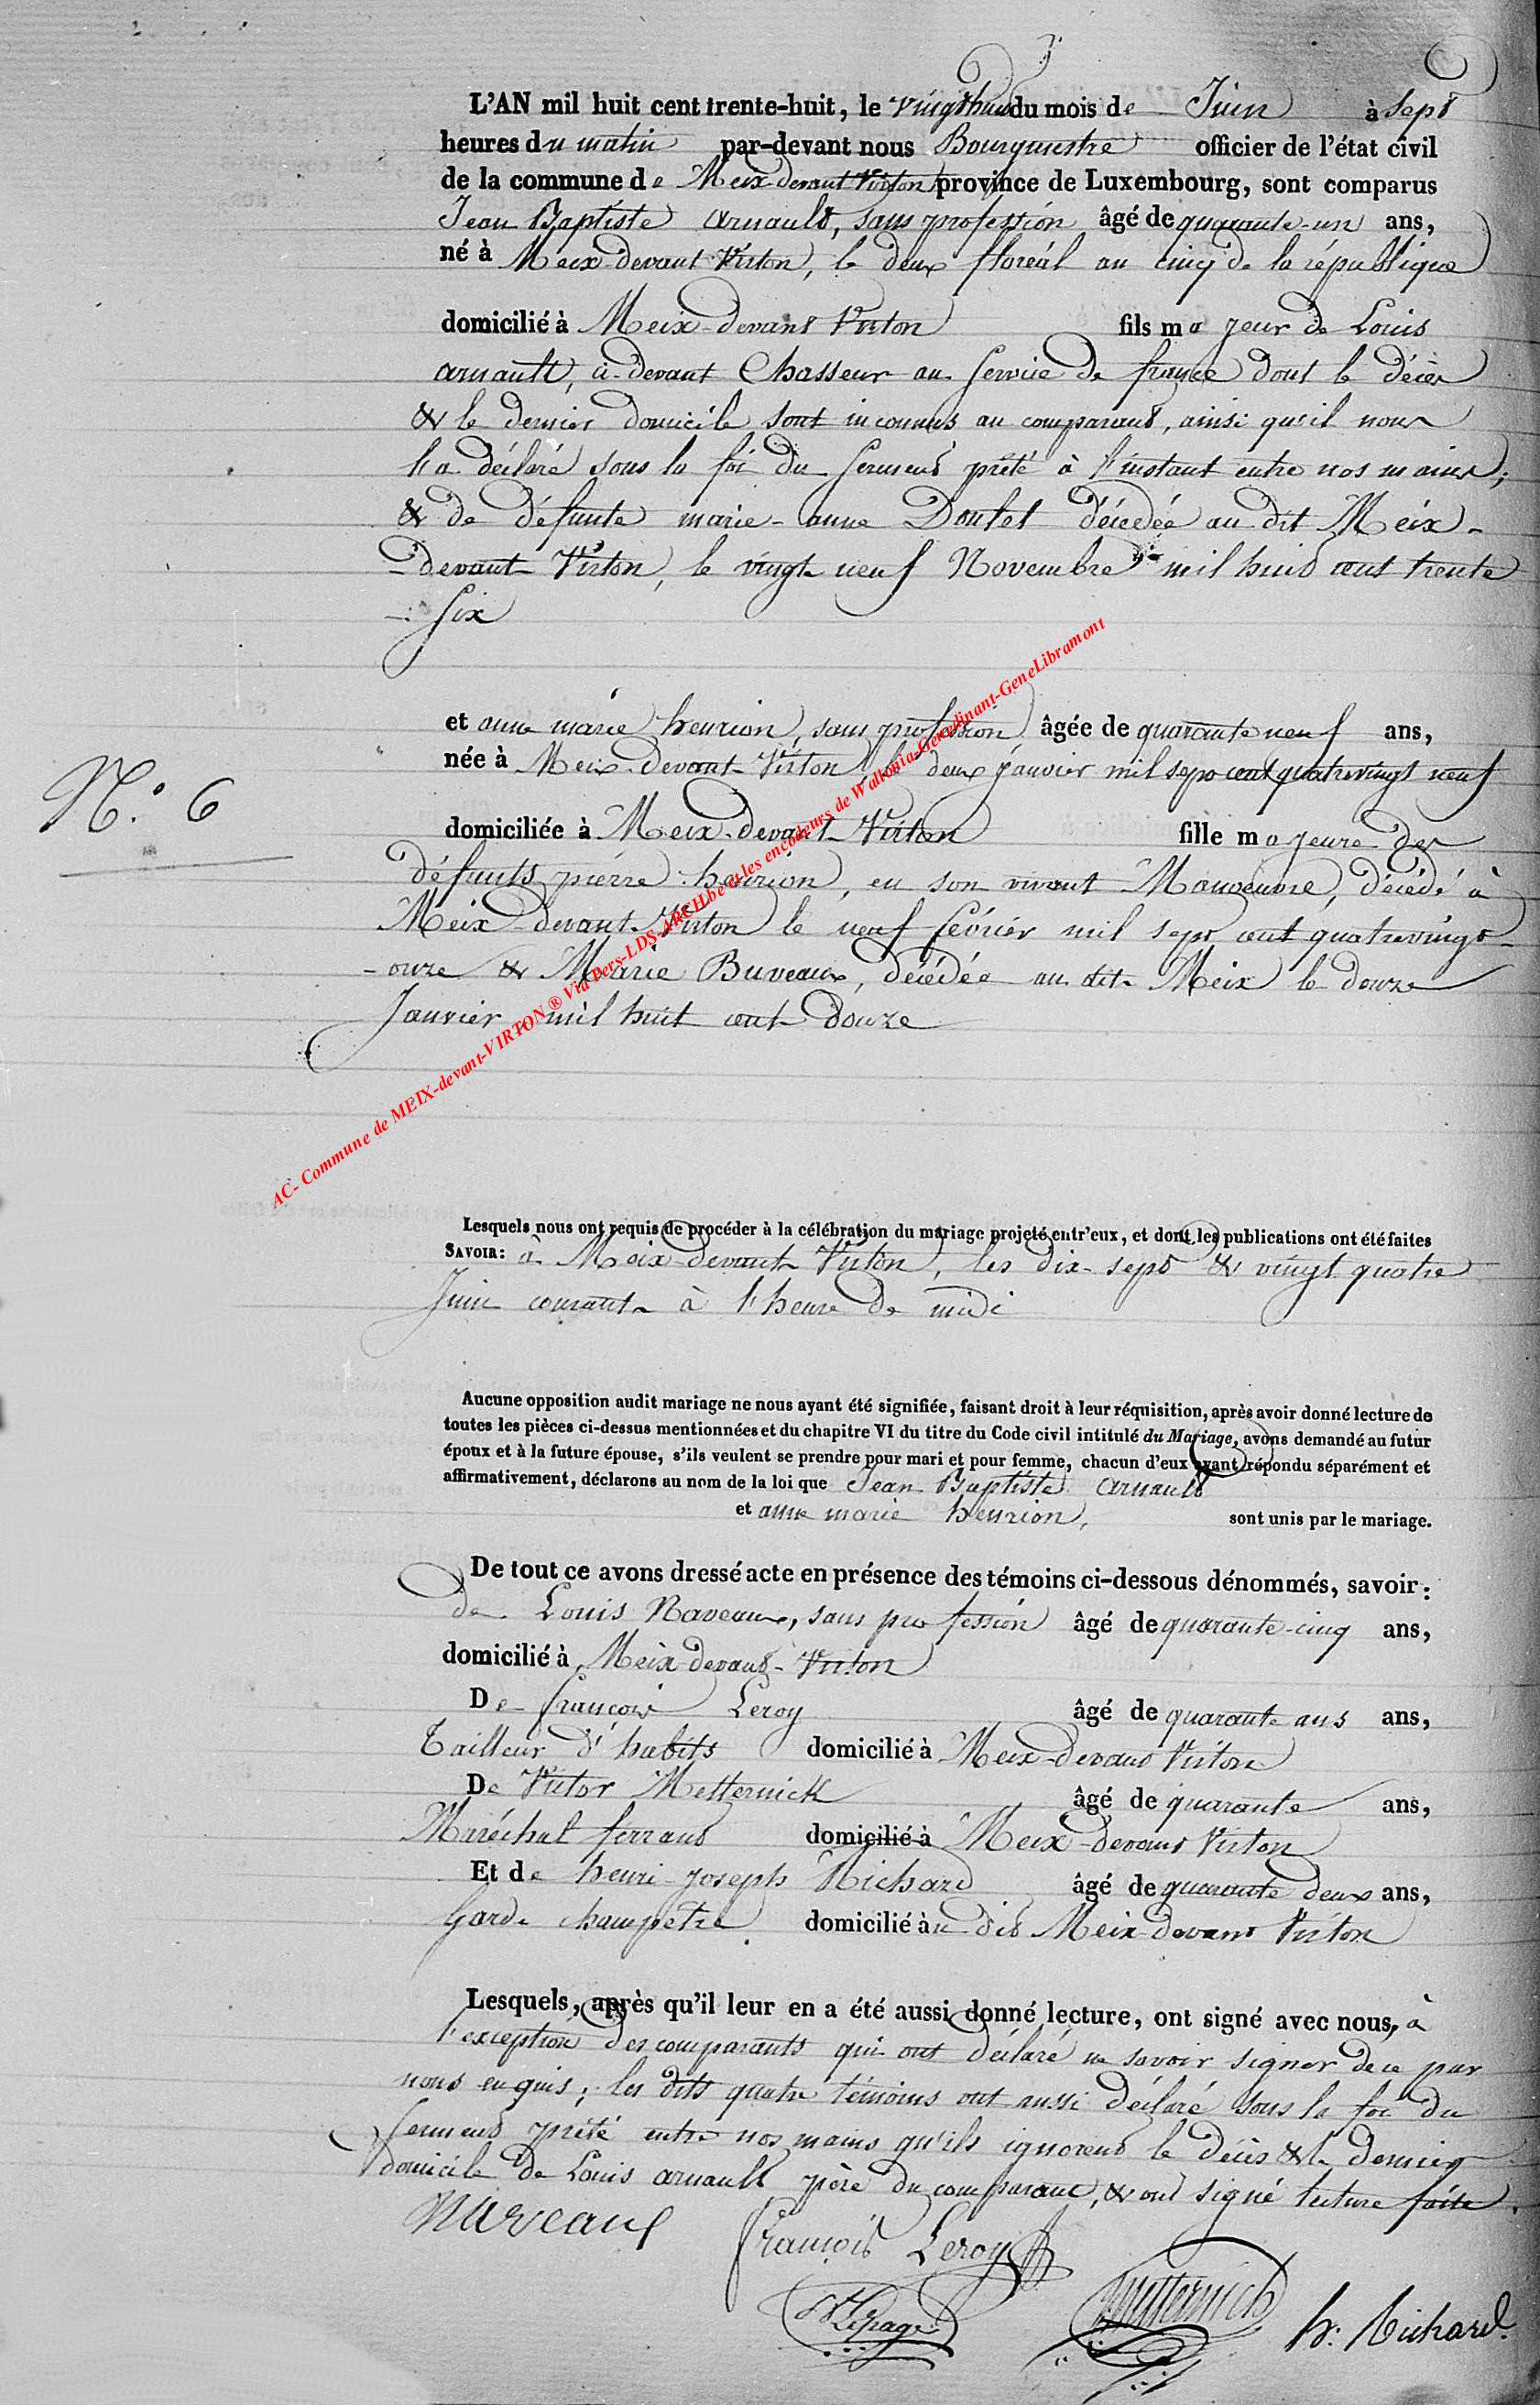 L'AN mil huit cent trente-huit, le vingt huit du mois de Juin à sept
heures du matin par-devant nous Bourgmestre officier de l'état civil
de la commune de Meix-devant Virton province de Luxembourg, sont comparus
Jean Baptiste arnault, sans profession âgé de quarante-un ans,
né à Meix-devant Virton, le deux floréal an cinq de la république
domicilié à Meix-devant Virton fils majeur de Louis
arnault, ci-devant Chasseur au Service de france dont le décès
& le dernier domicile sont inconnus au comparant, ainsi qu'il nous
l'a déclaré sous la foi du Serment prêté à l'instant entre nos mains;
& de défunte marie-anne Doulet décédée au dit Meix-
-devant Virton, le vingt neuf Novembre mil huit cent trente
-Six
N.° 6
et anne marie henrion, sans profession âgée de quarante neuf ans,
née à Meix-devant-Virton, le deux janvier mil sept cent quatrevingt neuf
domiciliée à Meix-devant-Virton fille majeure des
défunts pierre henrion, en son vivant Manœuvre, décédé à
Meix-devant-Virton le neuf février mil sept cent quatrevingt-
-onze & Marie Buveaux, décédée au dit Meix le douze
Janvier mil huit cent douze
AC- Commune de MEIX-devant-VIRTON ® Via Pers-LDS-ARCH.be et les encodeurs de Wallonia-Genedinant-GeneLibramont
Lesquels nous ont requis de procéder à la célébration du mariage projeté entr'eux, et dont les publications ont été faites
SAVOIR: à Meix-devant Virton, les dix-sept & vingt quatre
Juin courant à l'heure de midi
Aucune opposition audit mariage ne nous ayant été signifiée, faisant droit à leur réquisition, après avoir donné lecture de
toutes les pièces ci-dessus mentionnées et du chapitre VI du titre du Code civil intitulé du Mariage, avons demandé au futur
époux et à la future épouse, s'ils veulent se prendre pour mari et pour femme, chacun d'eux ayant répondu séparément et
affirmativement, déclarons au nom de la loi que Jean Baptiste arnault
et anne marie henrion, sont unis par le mariage.
De tout ce avons dressé acte en présence des témoins ci-dessous dénommés, savoir:
de Louis Naveaux, sans profession âgé de quarante-cinq ans,
domicilié à Meix-devant-Virton
De françois Leroy âgé de quarante ans ans,
Tailleur d'habits domicilié à Meix-devant Virton
De Victor Metternick âgé de quarante ans,
Maréchal ferrant domicilié à Meix-devant Virton
Et de henri-joseph Richard âgé de quarante deux ans,
Garde champêtre domicilié àu dit Meix-devant Virton
Lesquels, après qu'il leur en a été aussi donné lecture, ont signé avec nous, à
l'exception des comparants qui ont déclaré ne savoir signer de ce par
nous enquis; les dits quatre témoins ont aussi déclaré sous la foi du
Serment prêté entre nos mains qu'ils ignorent le décès & le dernier
domicile de Louis arnault père du comparant, & ont signé lecture faite.
Naveaux
françois Leroy
Lepage
Metternich
h: Richard